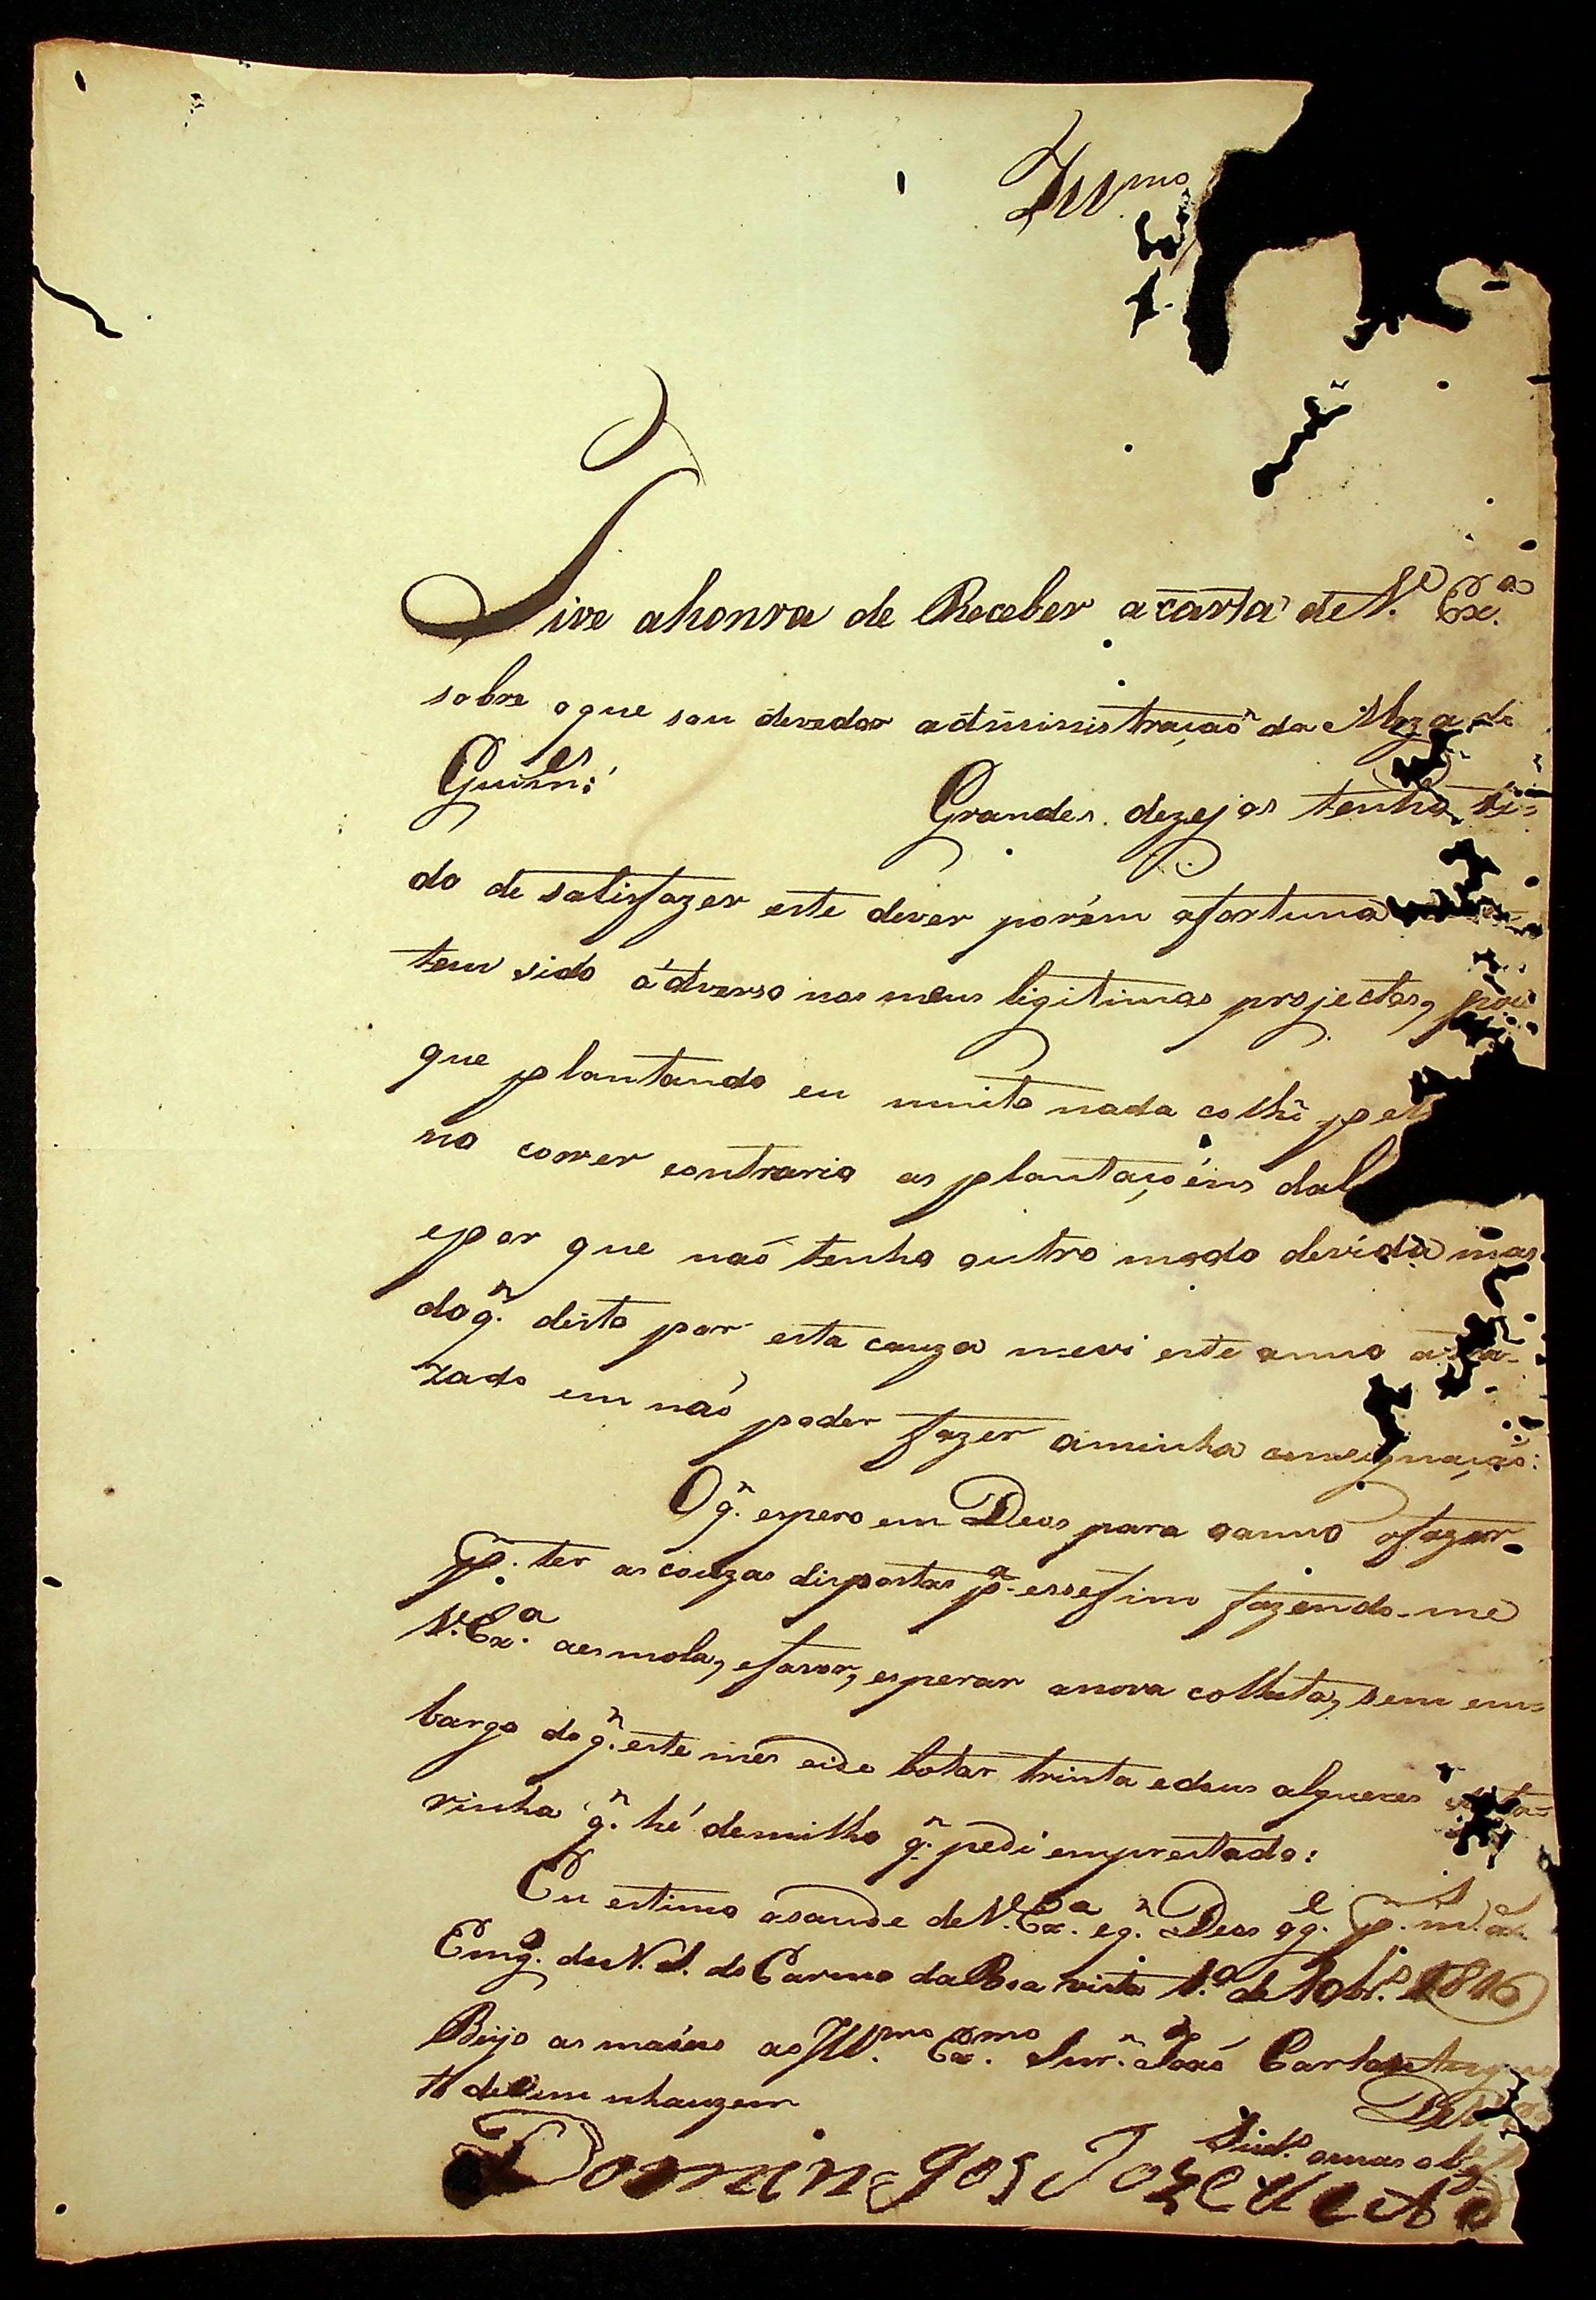 Ill.mo
Tive ahonra de Receber acarta de V. Ex.a
sobre oque sou devedor administração da Meza de
Guin.es
Grandes dezejos tenho ti=
do de satisfazer este dever porém afortuna
tem sido ádversa nos meus ligitimos projectos, por
que plantando eu muito nada colhi pel
no correr contrario as plantaçoéns dal
epor que não tenho outro modo devida mas
doq. disto por esta cauza mevi este anno atra=
zado em não poder fazer aminha consignação:
Oq. espero em Deos para oanno ofazer
p. ter as couzas dispostas p.a essefim fazendo-me
V. Ex.a aesmola, efavor, esperar anova colheita, sem em=
bargo do q. este mes eide botar trinta edous alqueres
rinha q. hé demilho q. pedi emprestado:
Eu estimo asaude de V. Ex.a eq. Deos g.e p. m.
Eng.o de N. S. do Carmo da Boa vista 1.o de 1816
Beijo as maõns ao Ill.mo Ex.mo Snr. João Carlos
De
Domingos Joze